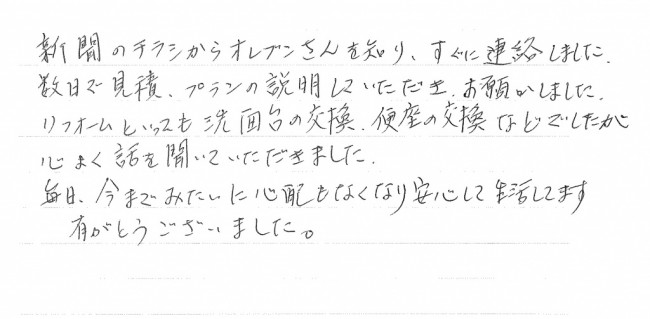 新聞のチラシからオレブンさんを知り、すぐに連絡しました.
数日で見積、プランの説明していただき.お願いしました.
リフォームといっても洗面台の交換.便座の交換などでしたが
心よく話を聞いていただきました.
毎日、今までみたいに心配もなくなり安心して生活してます
有がとうございました。